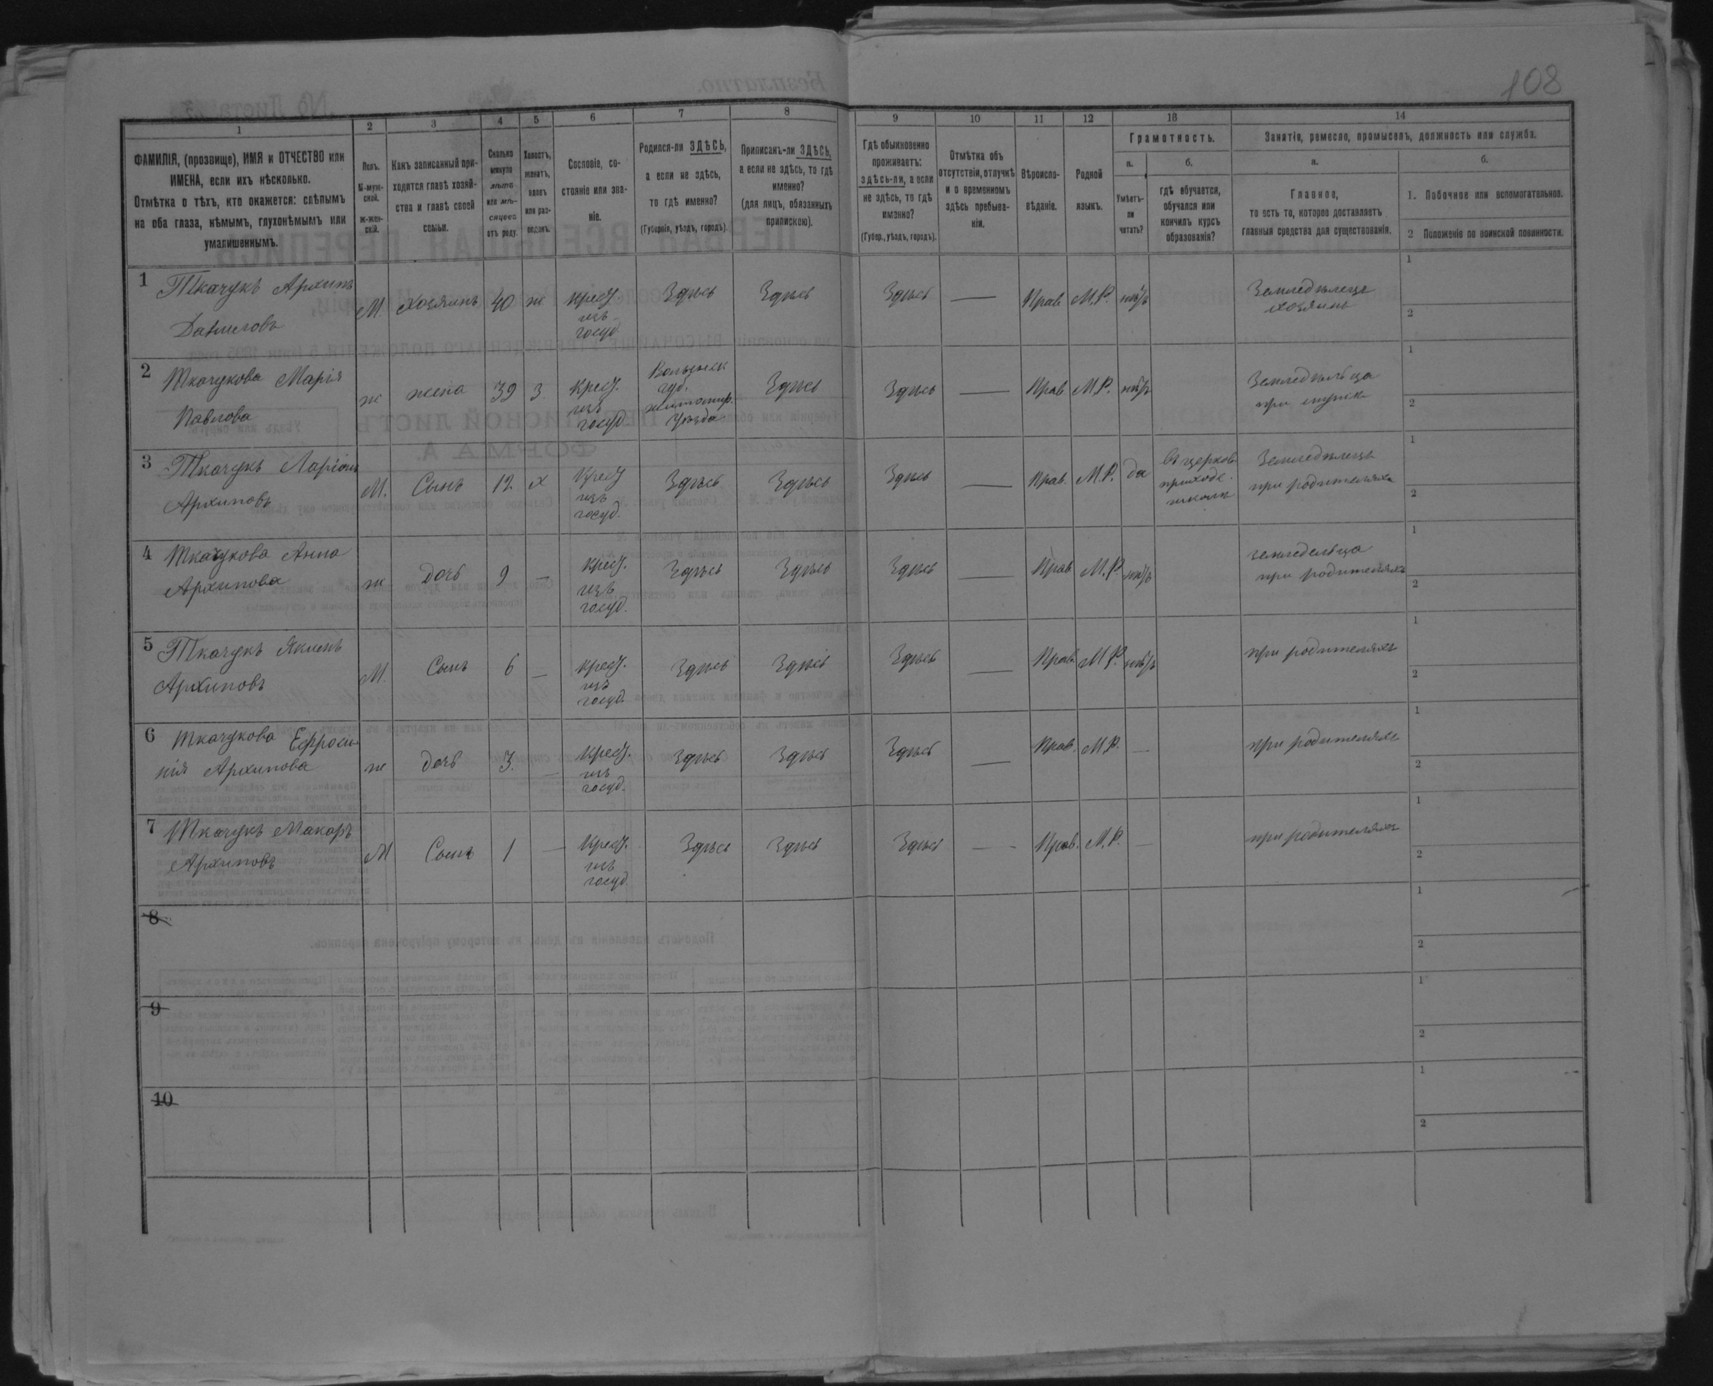 108
1 2 3 4 5 6 7 8 9 10 11 12 13 14
ФАМИЛІЯ, (прозвище), ИМЯ и ОТЧЕСТВО или
ИМЕНА, если ихъ нѣсколько.
Отмѣтка о тѣхъ, кто окажется: слѣпымъ
на оба глаза, нѣмымъ, глухонѣмымъ или
умалишеннымъ.
Полъ.
М-муж-
ской.
Ж-жен-
скій.
Какъ записанный при-
ходится главѣ хозяй-
ства и главѣ своей
семьи.
Сколько
минуло
лѣтъ
или мѣ-
сяцевъ
отъ роду.
Холостъ,
женатъ,
вдовъ
или раз-
веденъ.
Сословіе, со-
стояніе или зва-
ніе.
Родился-ли ЗДѢСЬ,
а если не здѣсь,
то гдѣ именно?
(Губернія, уѣздъ, городъ).
Приписанъ-ли ЗДѢСЬ,
а если не здѣсь, то гдѣ
именно?
(для лицъ, обязанныхъ
припискою).
Гдѣ обыкновенно
проживаетъ:
здѣсь-ли, а если
не здѣсь, то гдѣ
именно?
(Губер., уѣздъ, городъ).
Отмѣтка объ
отсутствіи, отлучкѣ
и о временномъ
здѣсь пребыва-
ніи.
Вѣроиспо-
вѣданіе.
Родной
языкъ.
Грамотность.
а.
Умѣетъ-
ли
читать?
б.
гдѣ обучается,
обучался или
кончилъ курсъ
образованія?
Занятіе, ремесло, промыселъ, должность или служба.
а.
Главное,
то есть то, которое доставляетъ
главныя средства для существованія.
б.
1. Побочное или вспомогательное.
2 Положеніе по воинской повинности.
1 Ткачукъ Архипъ
Даниловъ
М. хозяинъ 40 ж крест.
изъ
госуд.
Здѣсь Здѣсь Здѣсь — Прав М.Р. нѣтъ
Земледѣлецъ
хозяинъ
1
2
2 Ткачукова Марія
Павлова
ж жена 39 З крест.
изъ
госуд
Волынск
губ.
житомир.
уѣзда
Здѣсь Здѣсь — Прав М.Р. нѣтъ
Земледѣльца
при мужѣ
1
2
3 Ткачукъ Ларіонъ
Архиповъ
М. Сынъ 12 х крест
изъ
госуд.
Здѣсь Здѣсь Здѣсь — Прав М.Р. да
въ церков
приход.
школѣ
Земледѣлецъ
при родителяхъ
1
2
4 Ткачукова Анна
Архипова
ж дочь 9 — крест.
изъ
госуд.
Здѣсь Здѣсь Здѣсь — Прав М.Р. нѣтъ
земледельца
при родителяхъ
1
2
5 Ткачукъ Якимъ
Архиповъ
М. Сынъ 6 — крест.
изъ
госуд.
Здѣсь Здѣсь Здѣсь — Прав М.Р. нѣтъ
при родителяхъ
1
2
6 Ткачукова Ефроси
нія Архипова
ж дочь 3. — крест.
изъ
госуд.
Здѣсь Здѣсь Здѣсь — Прав. М.Р. —
при родителяхъ
1
2
7 Ткачукъ Макаръ
Архиповъ
М Сынъ 1 — крест.
изъ
госуд
Здѣсь Здѣсь Здѣсь — Прав. М.Р. —
при родителяхъ
1
2
8
1
2
9
1
2
10
1
2